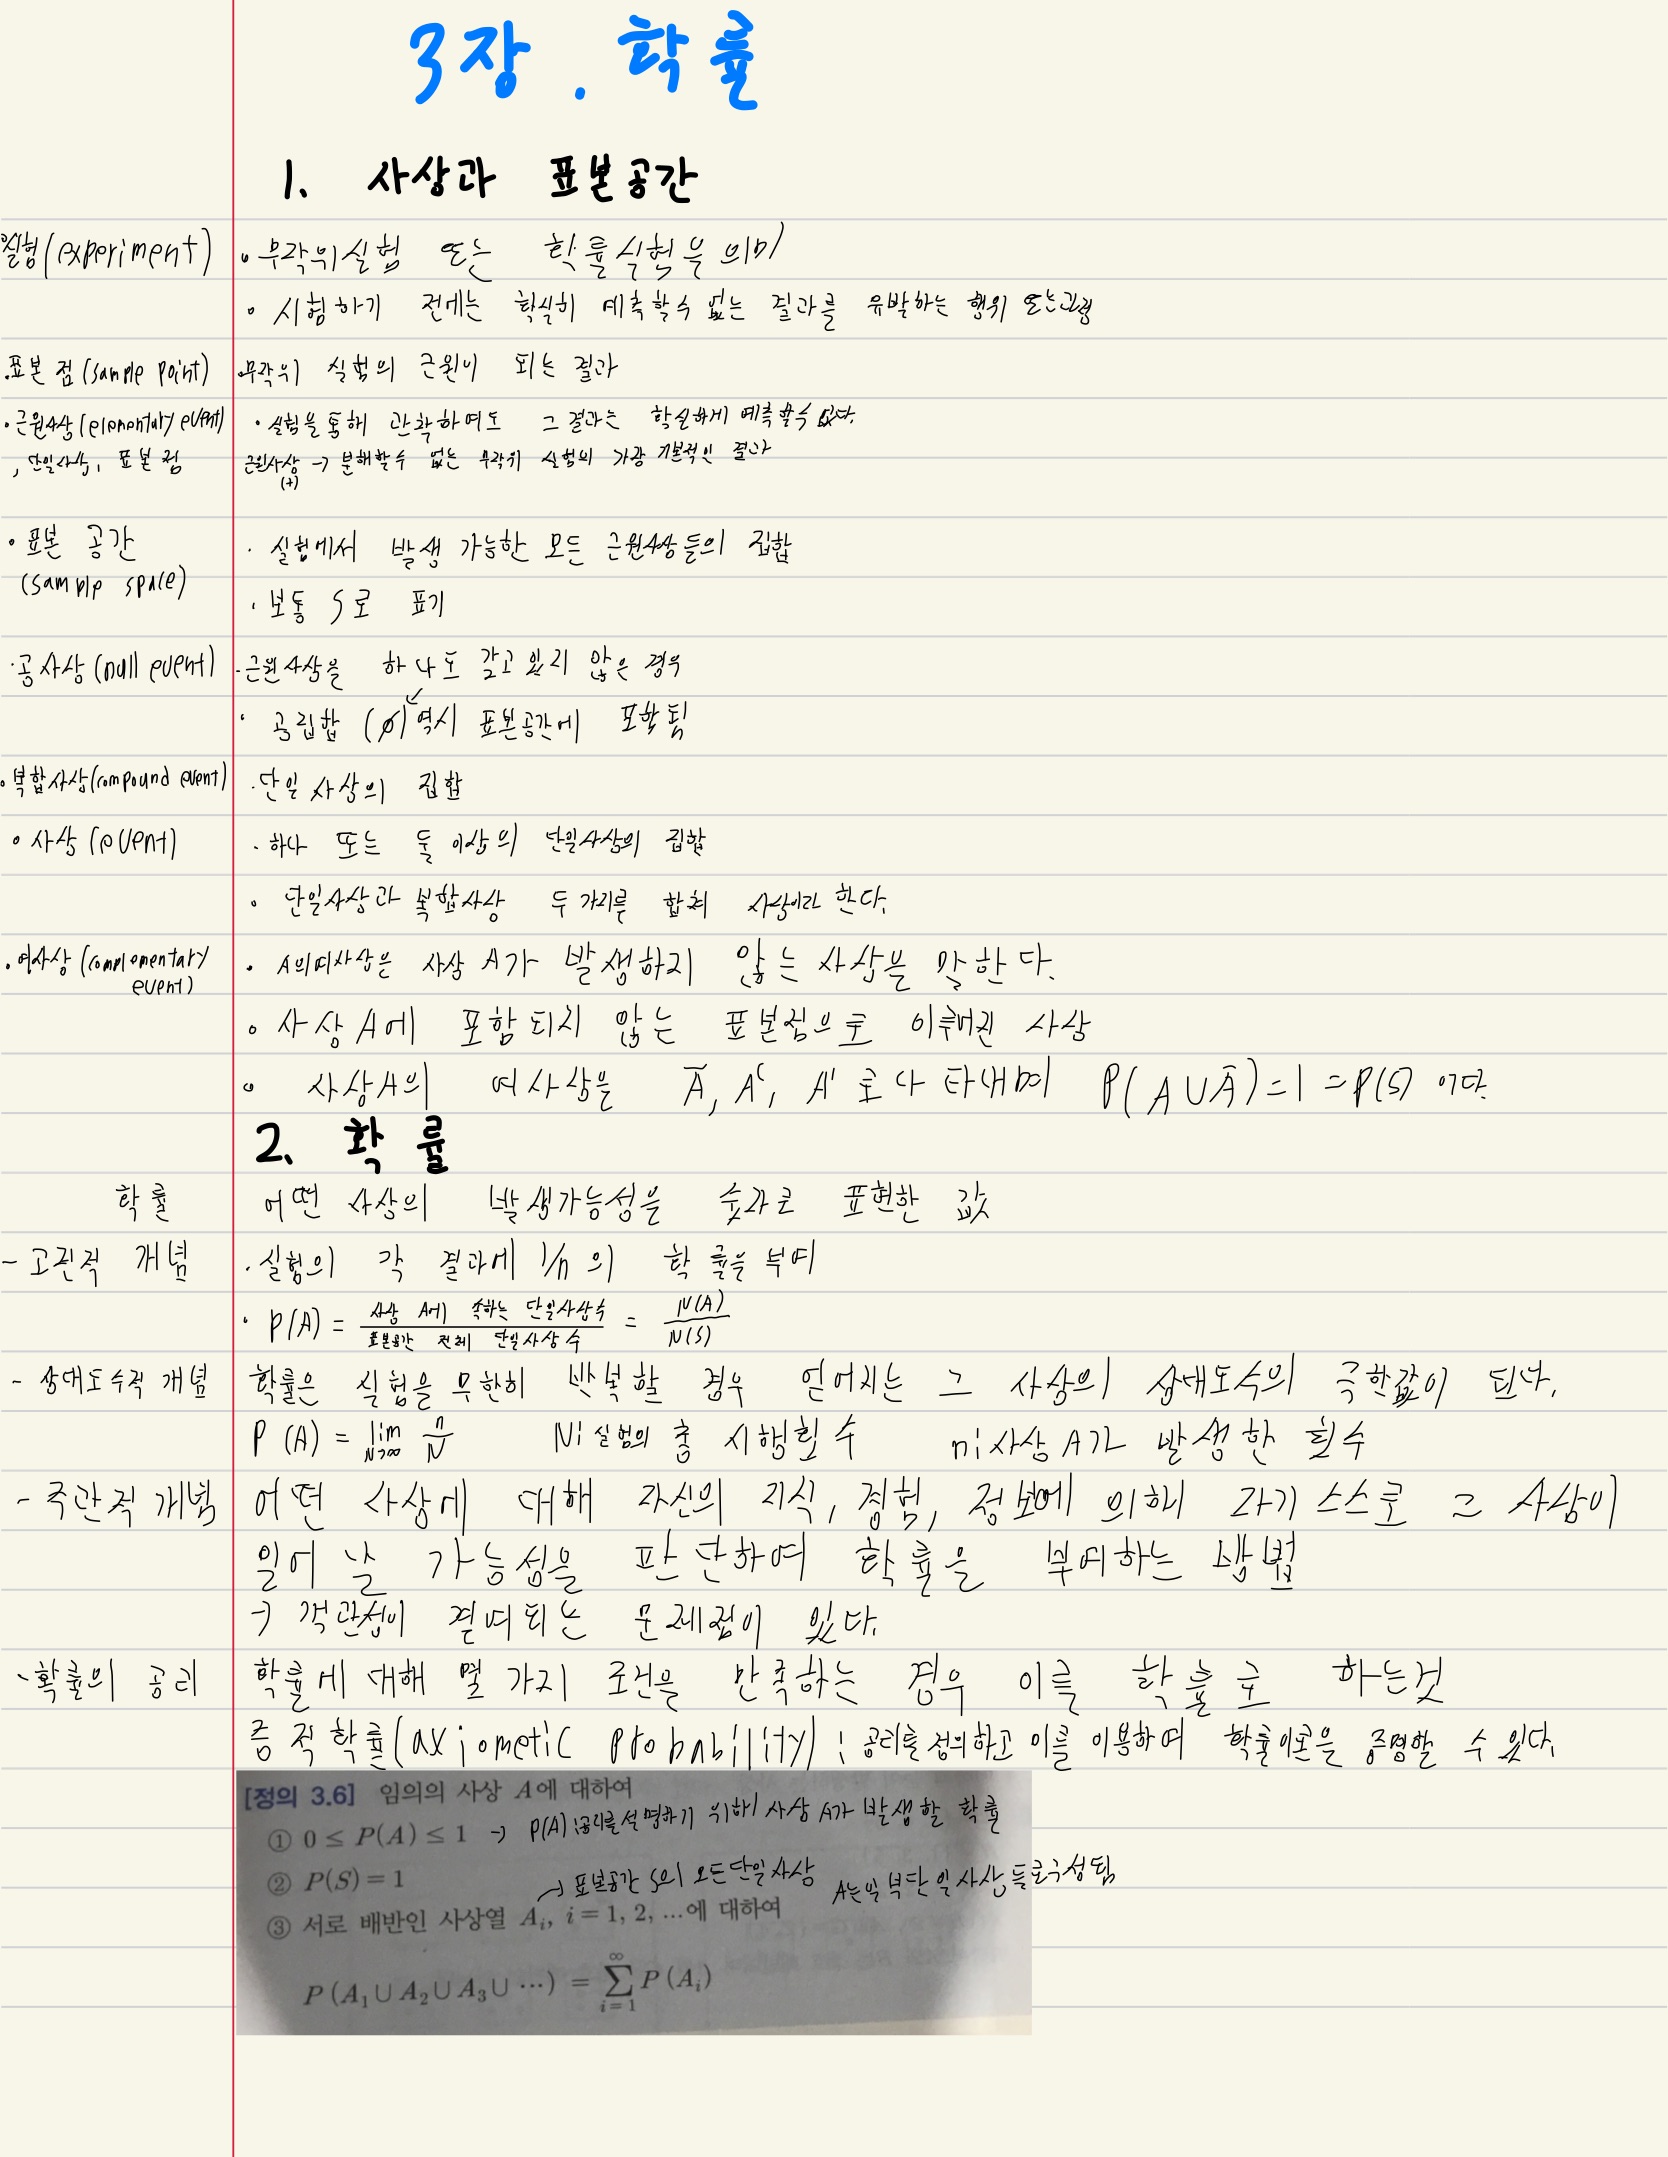 3장. 확률
1. 사상과 표본공간
실험(experiment) • 무작위실험 또는 확률실험을 의미
• 시험하기 전에는 확실히 예측할수 없는 결과를 유발하는 행위 또는과정
•표본 점(sample point) •무작위 실험의 근원이 되는 결과
•근원사상(elementary event) • 실험을 통해 관찰하여도 그 결과는 확실하게 예측할수 없다.
, 단일사상, 표본 점 근원사상 → 분해할수 없는 무작위 실험의 가장 기본적인 결과
(+)
• 표본 공간 • 실험에서 발생 가능한 모든 근원사상들의 집합
(sample space)
• 보통 S로 표기
•공사상(null event) •근원사상을 하나도 갖고 있지 않은 경우
• 공집합 (∅) 역시 표본공간에 포함됨
•복합사상(compound event) •단일 사상의 집합
• 사상(event) • 하나 또는 둘 이상의 단일사상의 집합
• 단일사상과 복합사상 두가지를 합쳐 사상이라 한다.
•여사상(complementary • A의여사상은 사상 A가 발생하지 않는 사상을 말한다.
event)
• 사상 A에 포함되지 않는 표본점으로 이루어진 사상
• 사상A의 여사상은 Ā, Aᶜ, A' 로 나타내며 P(A∪Ā)=1=P(S) 이다.
2. 확률
확률 어떤 사상의 발생가능성을 숫자로 표현한 값
- 고전적 개념 • 실험의 각 결과에 1/n 의 확률을 부여
• P(A) = 사상 A에 속하는 단일사상수 / 표본공간 전체 단일사상 수 = N(A) / N(S)
- 상대도수적 개념 확률은 실험을 무한히 반복할 경우 얻어지는 그 사상의 상대도수의 극한값이 된다.
P(A) = lim N→∞ n/N N: 실험의 총 시행횟수 n: 사상 A가 발생한 횟수
- 주관적 개념 어떤 사상에 대해 자신의 지식, 경험, 정보에 의해 자기 스스로 그 사상이
일어 날 가능성을 판단하여 확률을 부여하는 방법
→ 객관성이 결여되는 문제점이 있다.
- 확률의 공리 확률에 대해 몇 가지 조건을 만족하는 경우 이를 확률로 하는것
공적확률(axiometic probability) : 공리를 정의하고 이를 이용하여 확률이론을 증명할 수 있다.
[정의 3.6] 임의의 사상 A에 대하여
① 0 ≤ P(A) ≤ 1 → P(A):공리를 설명하기 위해 사상 A가 발생할 확률
② P(S) = 1 → 표본공간 S의 모든단일사상 A는일부단일사상들로구성됨
③ 서로 배반인 사상열 Aᵢ, i = 1, 2, …에 대하여
P(A₁∪A₂∪A₃∪ ⋯) = ∑ i=1 ∞ P(Aᵢ)